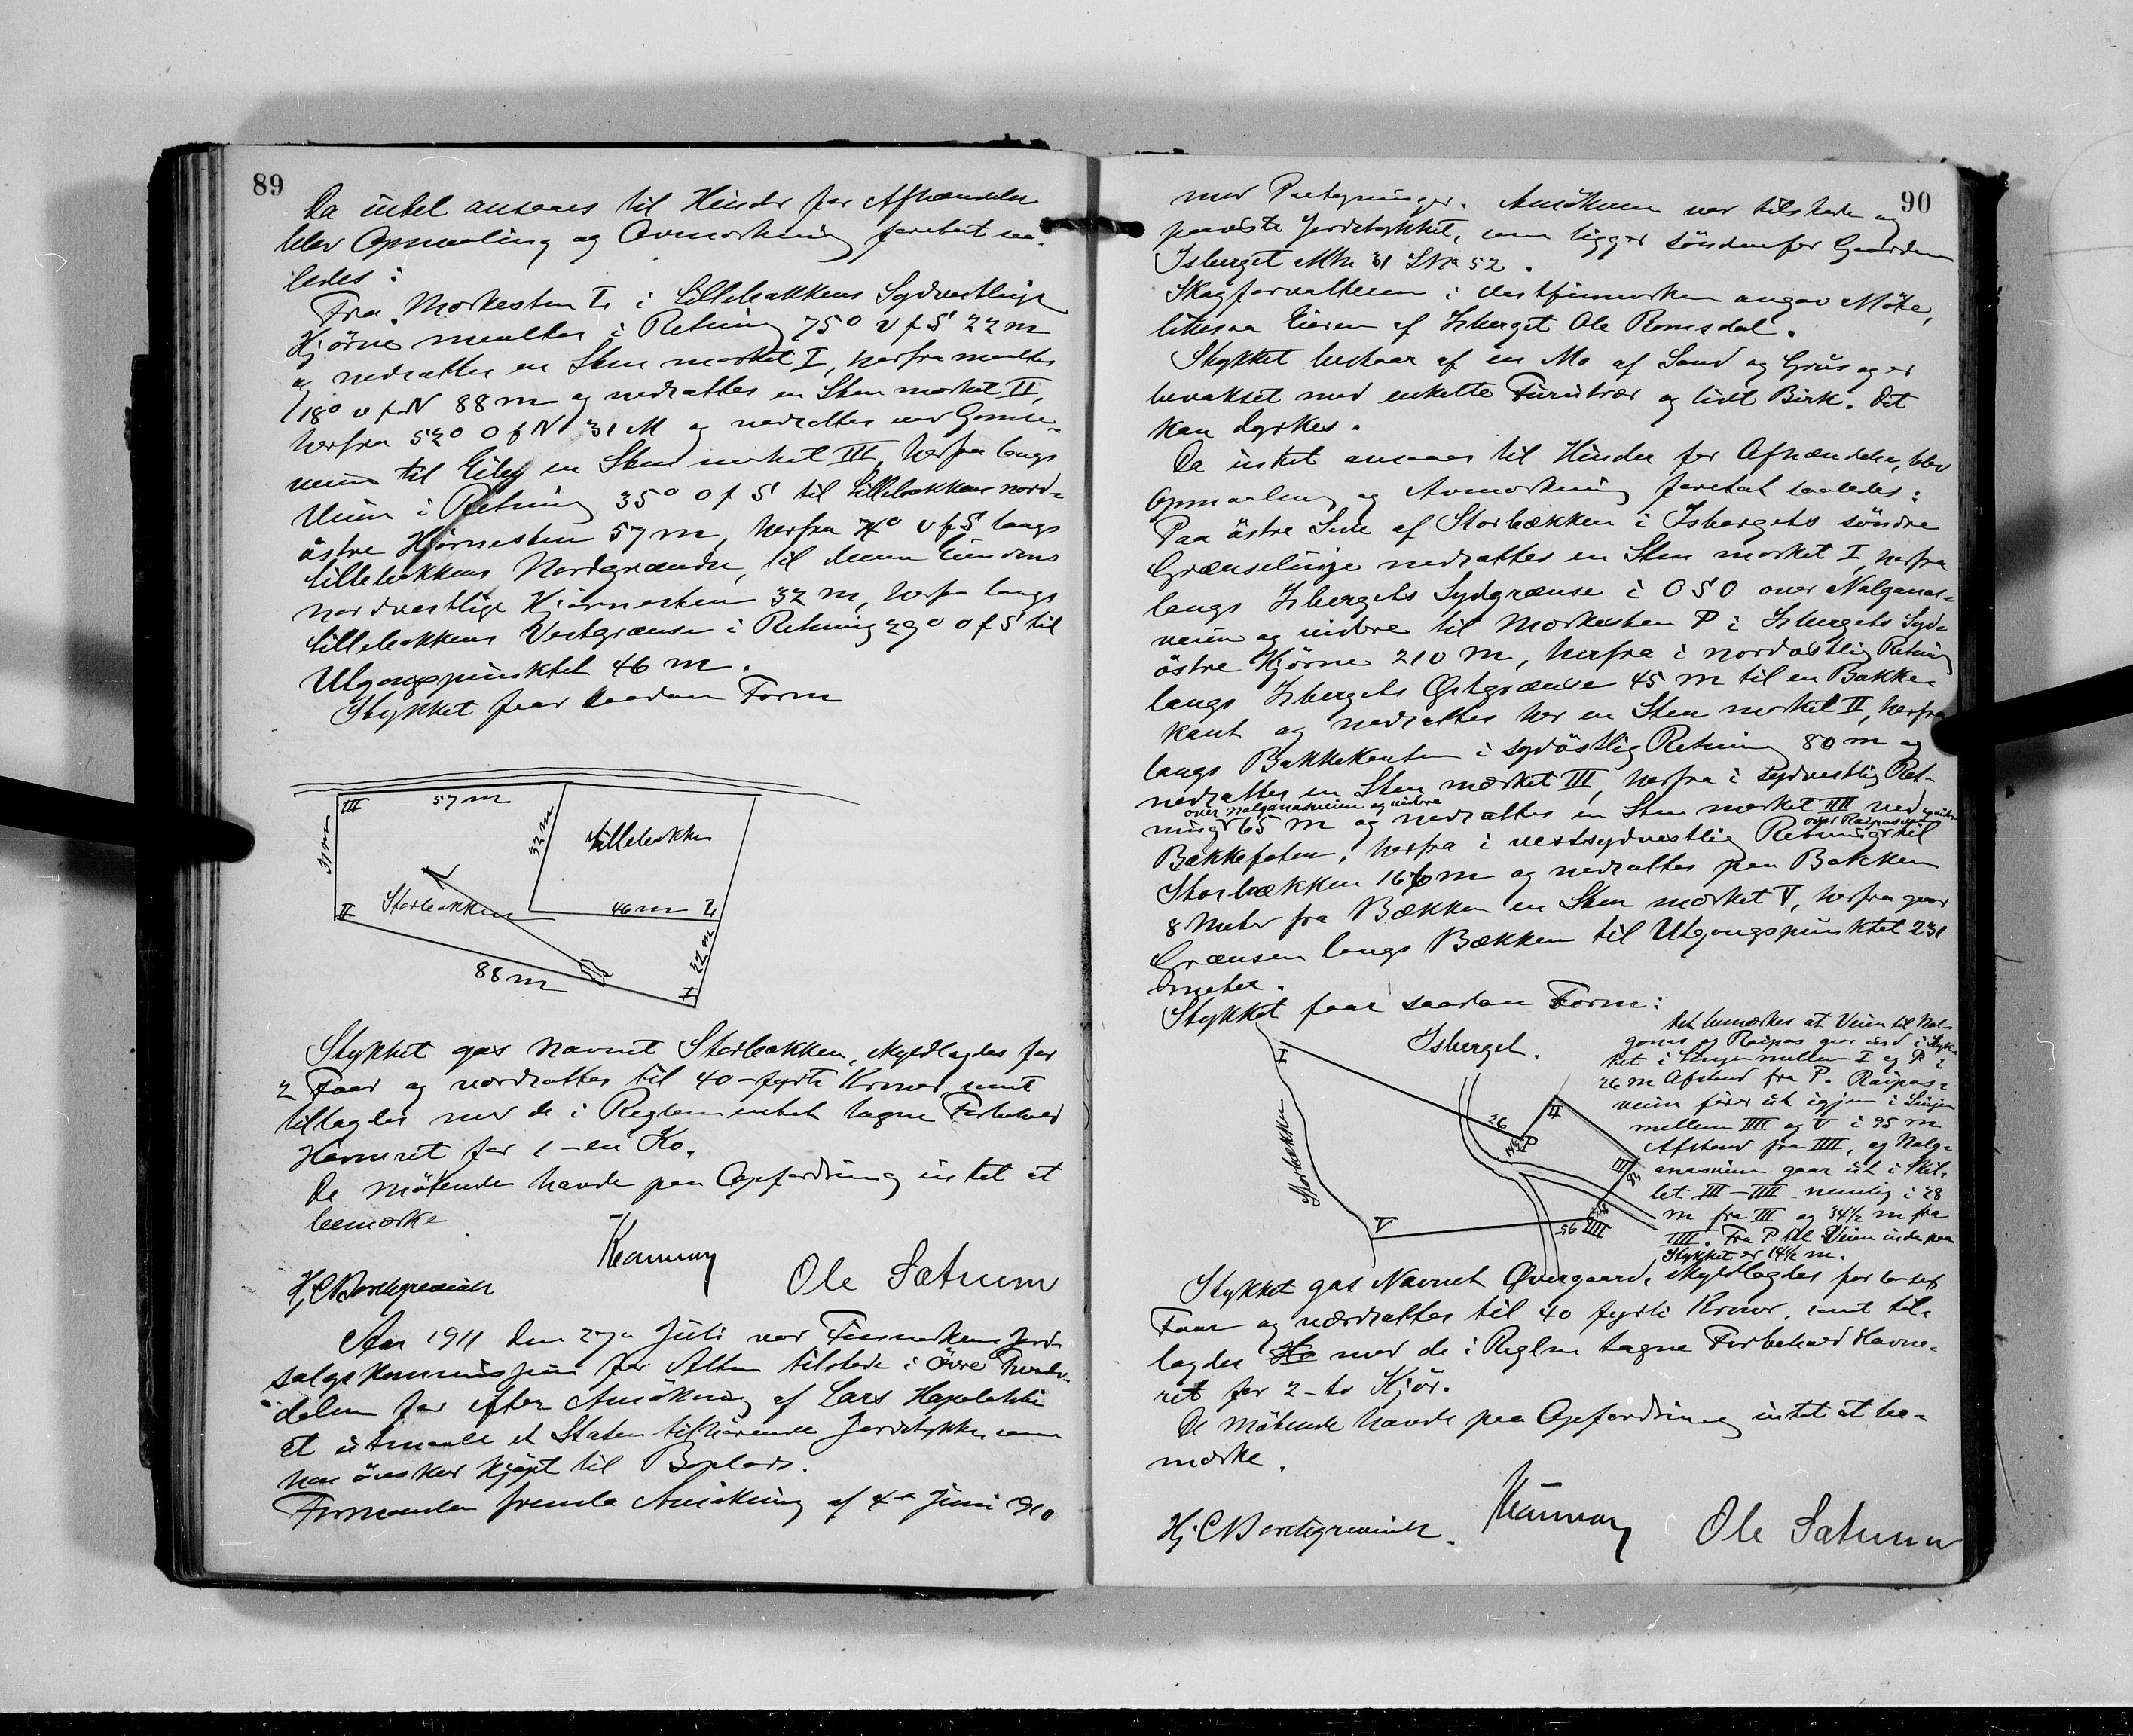 89
Da intet ansaaes til Hinder for Afhændelse
blev Opmaaling og Avmerkning foretat saa-
ledes:
Fra Merkesten L i Lillebakkens Sydvestlige
Hjörne maaltes i Retning 75° v f S 22 m
og nedsattes en Sten merket I, herfra maaltes
18° v f N 88 m og nedsattes en Sten merket II,
herfra 52° O f N 31 M og nedsattes ved
veien til Eiby en Sten merket III, herfra langs
Veien i Retning 35° O f S til Lillebakkens nord-
östre Hjörnesten 57 m, herfra 74° v f S langs
Lillebakkens Nordgrændse, til denne Eiendoms
nordvestlige Hjörnesten 32 m, herfra langs
Lillebakkens Vestgrænse i Retning 29° O f S til
Utgangspunktet 46 m.
Stykket faar saadan Form
III
57 m
31 m
32 m
Lillebakken
II
Storbakken
46 m L
22 m
88 m
I
Stykket gas Navnet Storbakken, skyldlagdes for
2 Faar og værdsattes til 40 - fyrti Kroner, samt
tillagdes med de i Reglementet tagne Forbehold
Havneret for 1 - en Ko.
De mötende havde paa Opfordring intet at
bemerke
Ole Sætrum
Aar 1911 den 27de Juli var Finmarkens Jord-
salgskommission for Alten tilstede i Övre
dalen for efter Ansökning af Lars
at utmaale et Staten tilhörende Jordstykke som
han önsker kjöpt til Boplads.
Formanden fremla Ansökning af 4de Juni 1910
90
med Paategninger. Ansökeren var tilstede og
paaviste Jordstykket, som ligger söndenfor Gaarden
Isberget M№ 31 L№ 52.
Skogforvalteren i Vestfinmarken angav Möte,
likesaa Eieren af Isberget Ole Romsdal.
Stykket bestaar af en Mo af Sand og Grus og er
bevokset med enkelte Furutrær og lidt Birk. Det
kan dyrkes.
Da intet ansaaes til Hinder for Afhændelse, blev
Opmaaling og Avmerkning foretat saaledes:
Paa östre Side af Storbækken i Isbergets söndre
Grænselinje nedsattes en Sten merket I, herfra
langs Isbergets Sydgrænse i O S O over Nalganas-
veien og videre til Merkesten P i Isbergets Syd-
östre Hjörne 210 m, herfra i nordöstlig Retning
langs Isbergets Østgrænse 45 m til en Bakke-
kant og nedsattes her en Sten merket II, herfra
langs Bakkekanten i sydöstlig Retning 80 m og
nedsattes en Sten merket III, herfra i sydvestlig Ret-
over Nalganasveien og videre
ning 65 m og nedsattes en Sten merket IIII ved
over Raipasveien og videre
Bakkefoten, herfra i vestsydvestlig Retning til
Storbækken 166 m og nedsattes paa Bakken
8 Meter fra Bækken en Sten merket V, herfra gaar
Grænsen langs Bækken til Utgangspunktet 231
meter.
Stykket faar saadan Form:
Det bemerkes at Veien til Nal-
ganas og Raipas gaar ind i Styk-
ket i Linjen mellem I og P i
26 m Afstand fra P. Raipas-
veien förer ut igjen i Linjen
mellem IIII og V i 95 m
Afstand fra IIII, og Nalg-
anasveien gaar ut i Skil-
let III - IIII nemlig i 28
m fra III og 34½ m fra
IIII. Fra P til Veien inde paa
Stykket er 14½ m.
Isberget.
I
Storbækken
26
P
II
III
28
95
IIII
V
Stykket gas Navnet Øvergaard, skyldlagdes for
Faar og værdsattes til 40 fyrti Kroner, samt til-
lagdes med de i Reglm tagne Forbehold Havne-
ret for 2 - to Kjör.
De mötende havde paa Opfordring intet at be-
merke.
Ole Sætrum